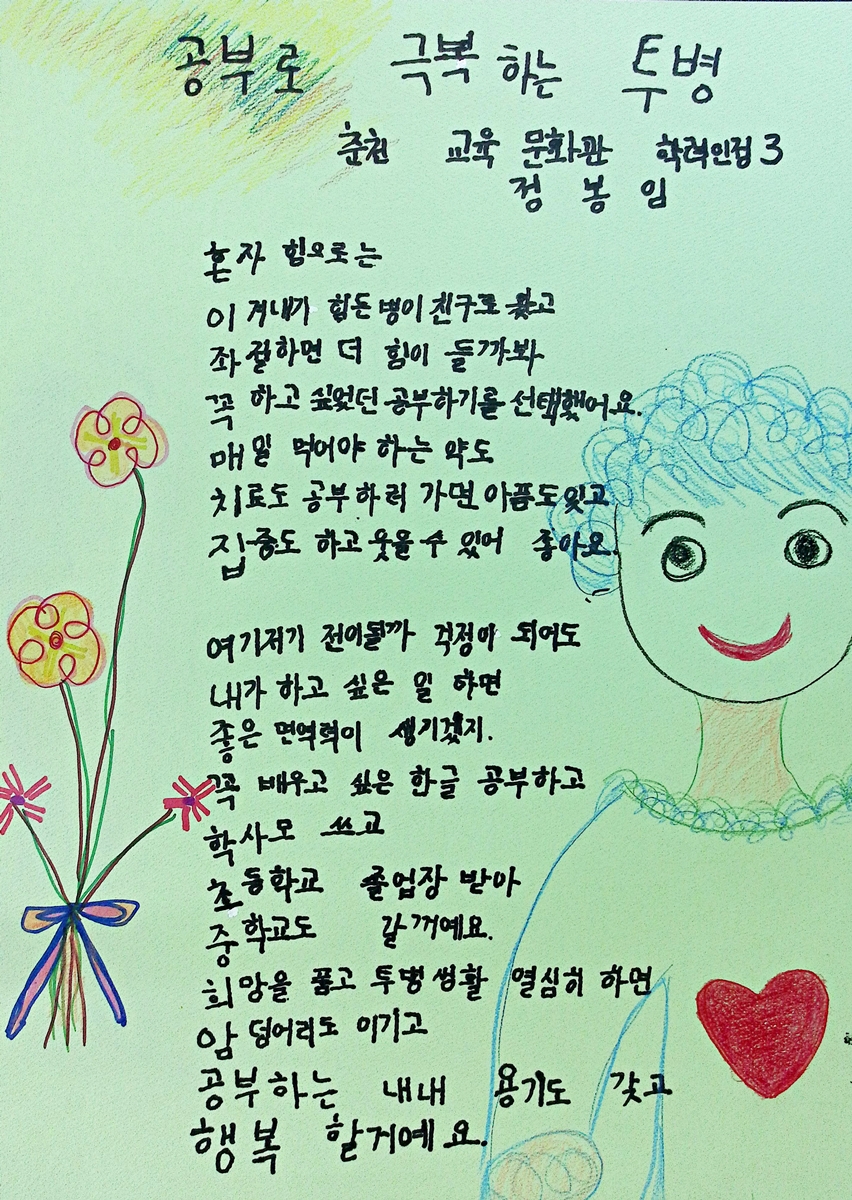 공부로 극복하는 투병
춘천 교육 문화관 학력인정 3
정 봉 임
혼자 힘으로는
이겨내기 힘든 병이 친구로 왔고
좌절하면 더 힘이 들까봐
꼭 하고 싶었던 공부하기를 선택했어요.
매일 먹어야 하는 약도
치료도 공부하러 가면 아픔도 잊고
집중도 하고 웃을 수 있어 좋아요.
여기저기 전이될까 걱정이 되어도
내가 하고 싶은 일 하면
좋은 면역력이 생기겠지.
꼭 배우고 싶은 한글 공부하고
학사모 쓰고
초등학교 졸업장 받아
중학교도 갈꺼예요.
희망을 품고 투병생활 열심히 하면
암 덩어리도 이기고
공부하는 내내 용기도 갖고
행복 할거예요.